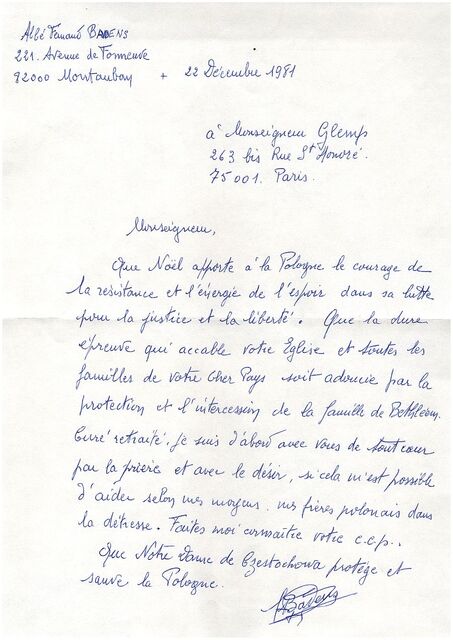 Abbé Fernand BADENS
221. Avenue de Fonneuve
82000 Montauban + 22 Décembre 1981
à Monseigneur Glemp
263 bis Rue St Honoré.
75001. Paris.
Monseigneur,
Que Noël apporte à la Pologne le courage de
la resistance et l'énergie de l'espoir dans sa lutte
pour la justice et la liberté. Que la dure
épreuve qui accable votre Eglise et toutes les
familles de votre cher Pays soit adoucie par la
protection et l'intercession de la famille de Bethléem.
Curé retraité, je suis d'abord avec vous de tout cœur
par la prière et avec le désir, si cela m'est possible
d'aider selon mes moyens, mes frères polonais dans
la détresse. Faites moi connaître votre c.c.p..
Que Notre Dame de Czestochowa protège et
sauve la Pologne.
Badens